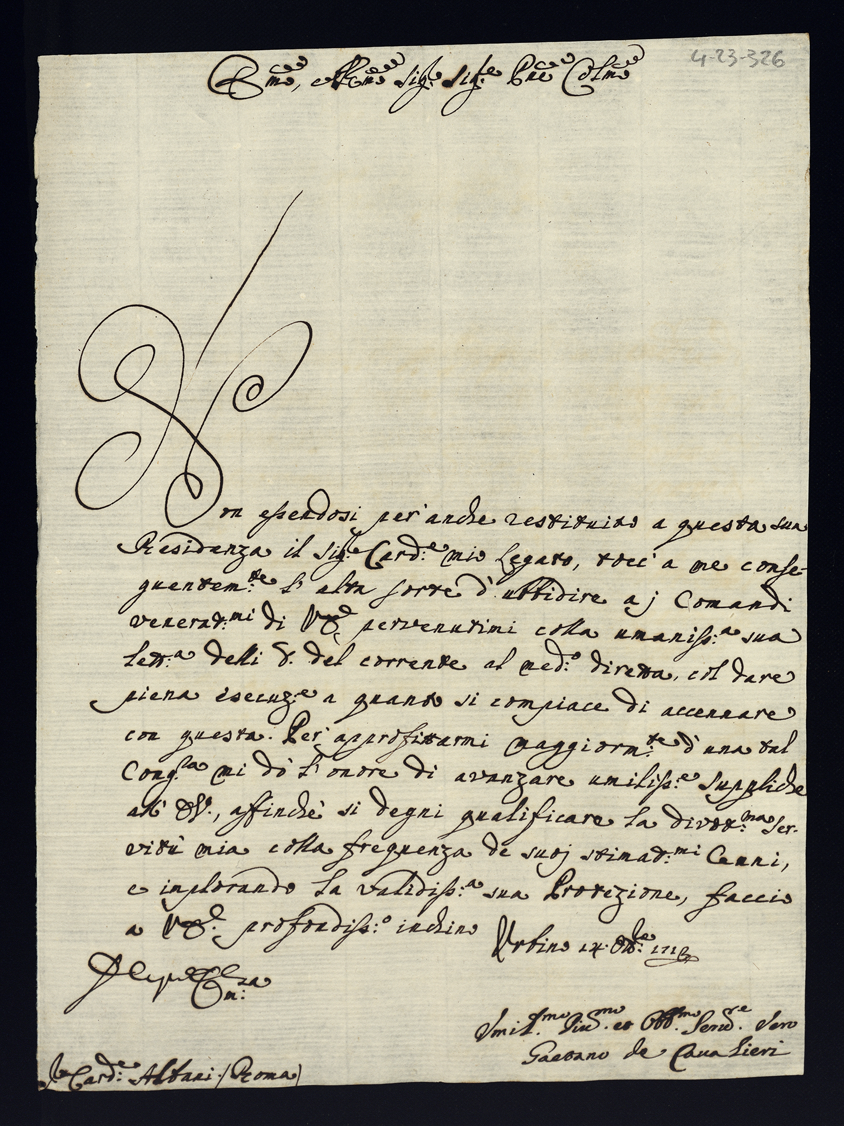 4-23-326
Emo, e Rmo Sig.re Sig.re Pne Colmo
Non essendosi per anche restituito a questa sua
Residenza il Sig.r Card.e mio Legato, tocc' a me conse-
guentem.te l'alta sorte d'ubbidire aj Comandi
venerat.mi di V.E. pervenutimi colla umaniss.a sua
lett.a delli 8. del corrente al med.o diretta, col dare
piena esecuz.e a quanto si compiace di accennare
con questa. Per approfittarmi maggiorm.te d'una tal
Cong.ra mi dò l'onore di avanzare umiliss.e suppliche
all' E.V., affinchè si degni qualificare la divot.ma ser-
vitù mia colla frequenza de suoj stimat.mi Cenni,
e implorando la validiss.a sua Protezione, faccio
a V.E. profondiss.o inchino Urbino 14. Ott.bre
Em.za
Umil.mo Div.mo et Obb.mo Serv.re Vero
Gaetano de Cavalieri
Card.e Albani (Roma)